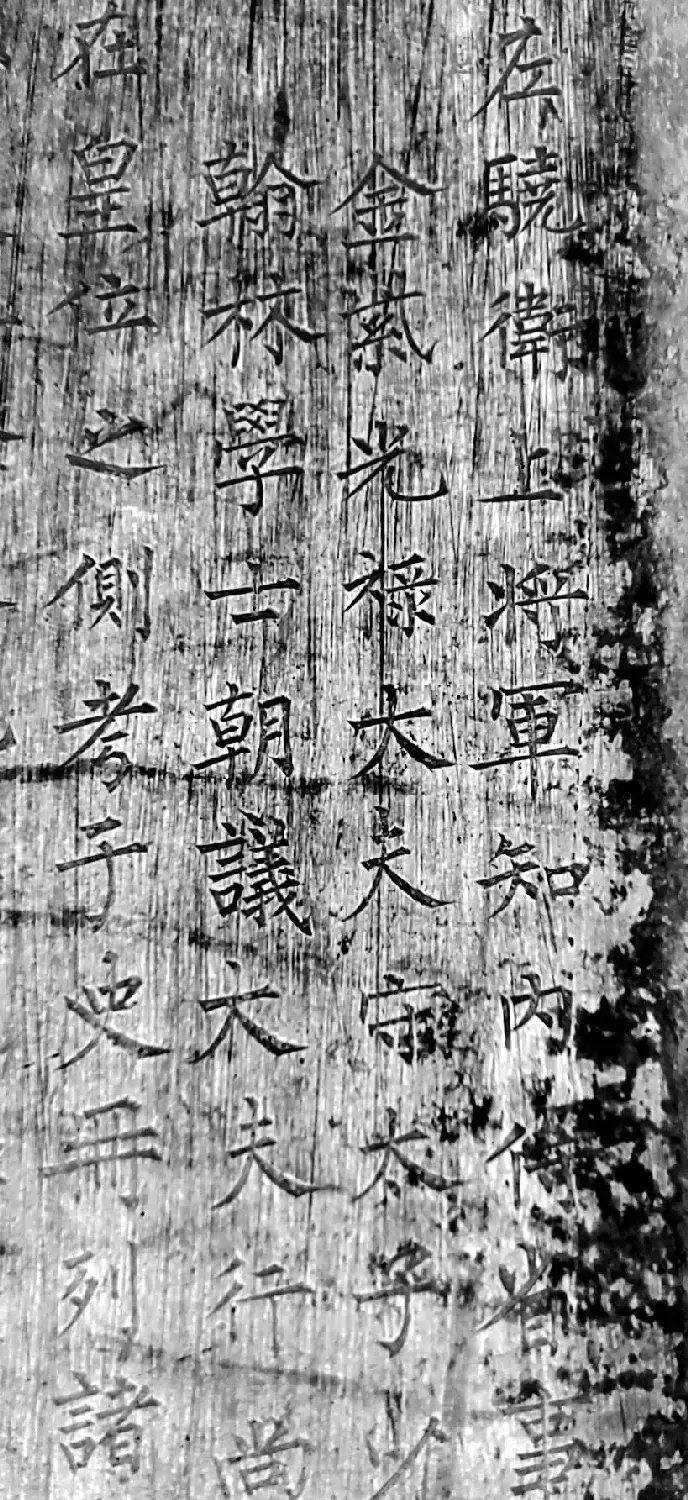 左驍衛上將軍知內侍省事
金紫光祿大夫守太子少
翰林學士朝議大夫行尚
在皇位之側考子史再列諸